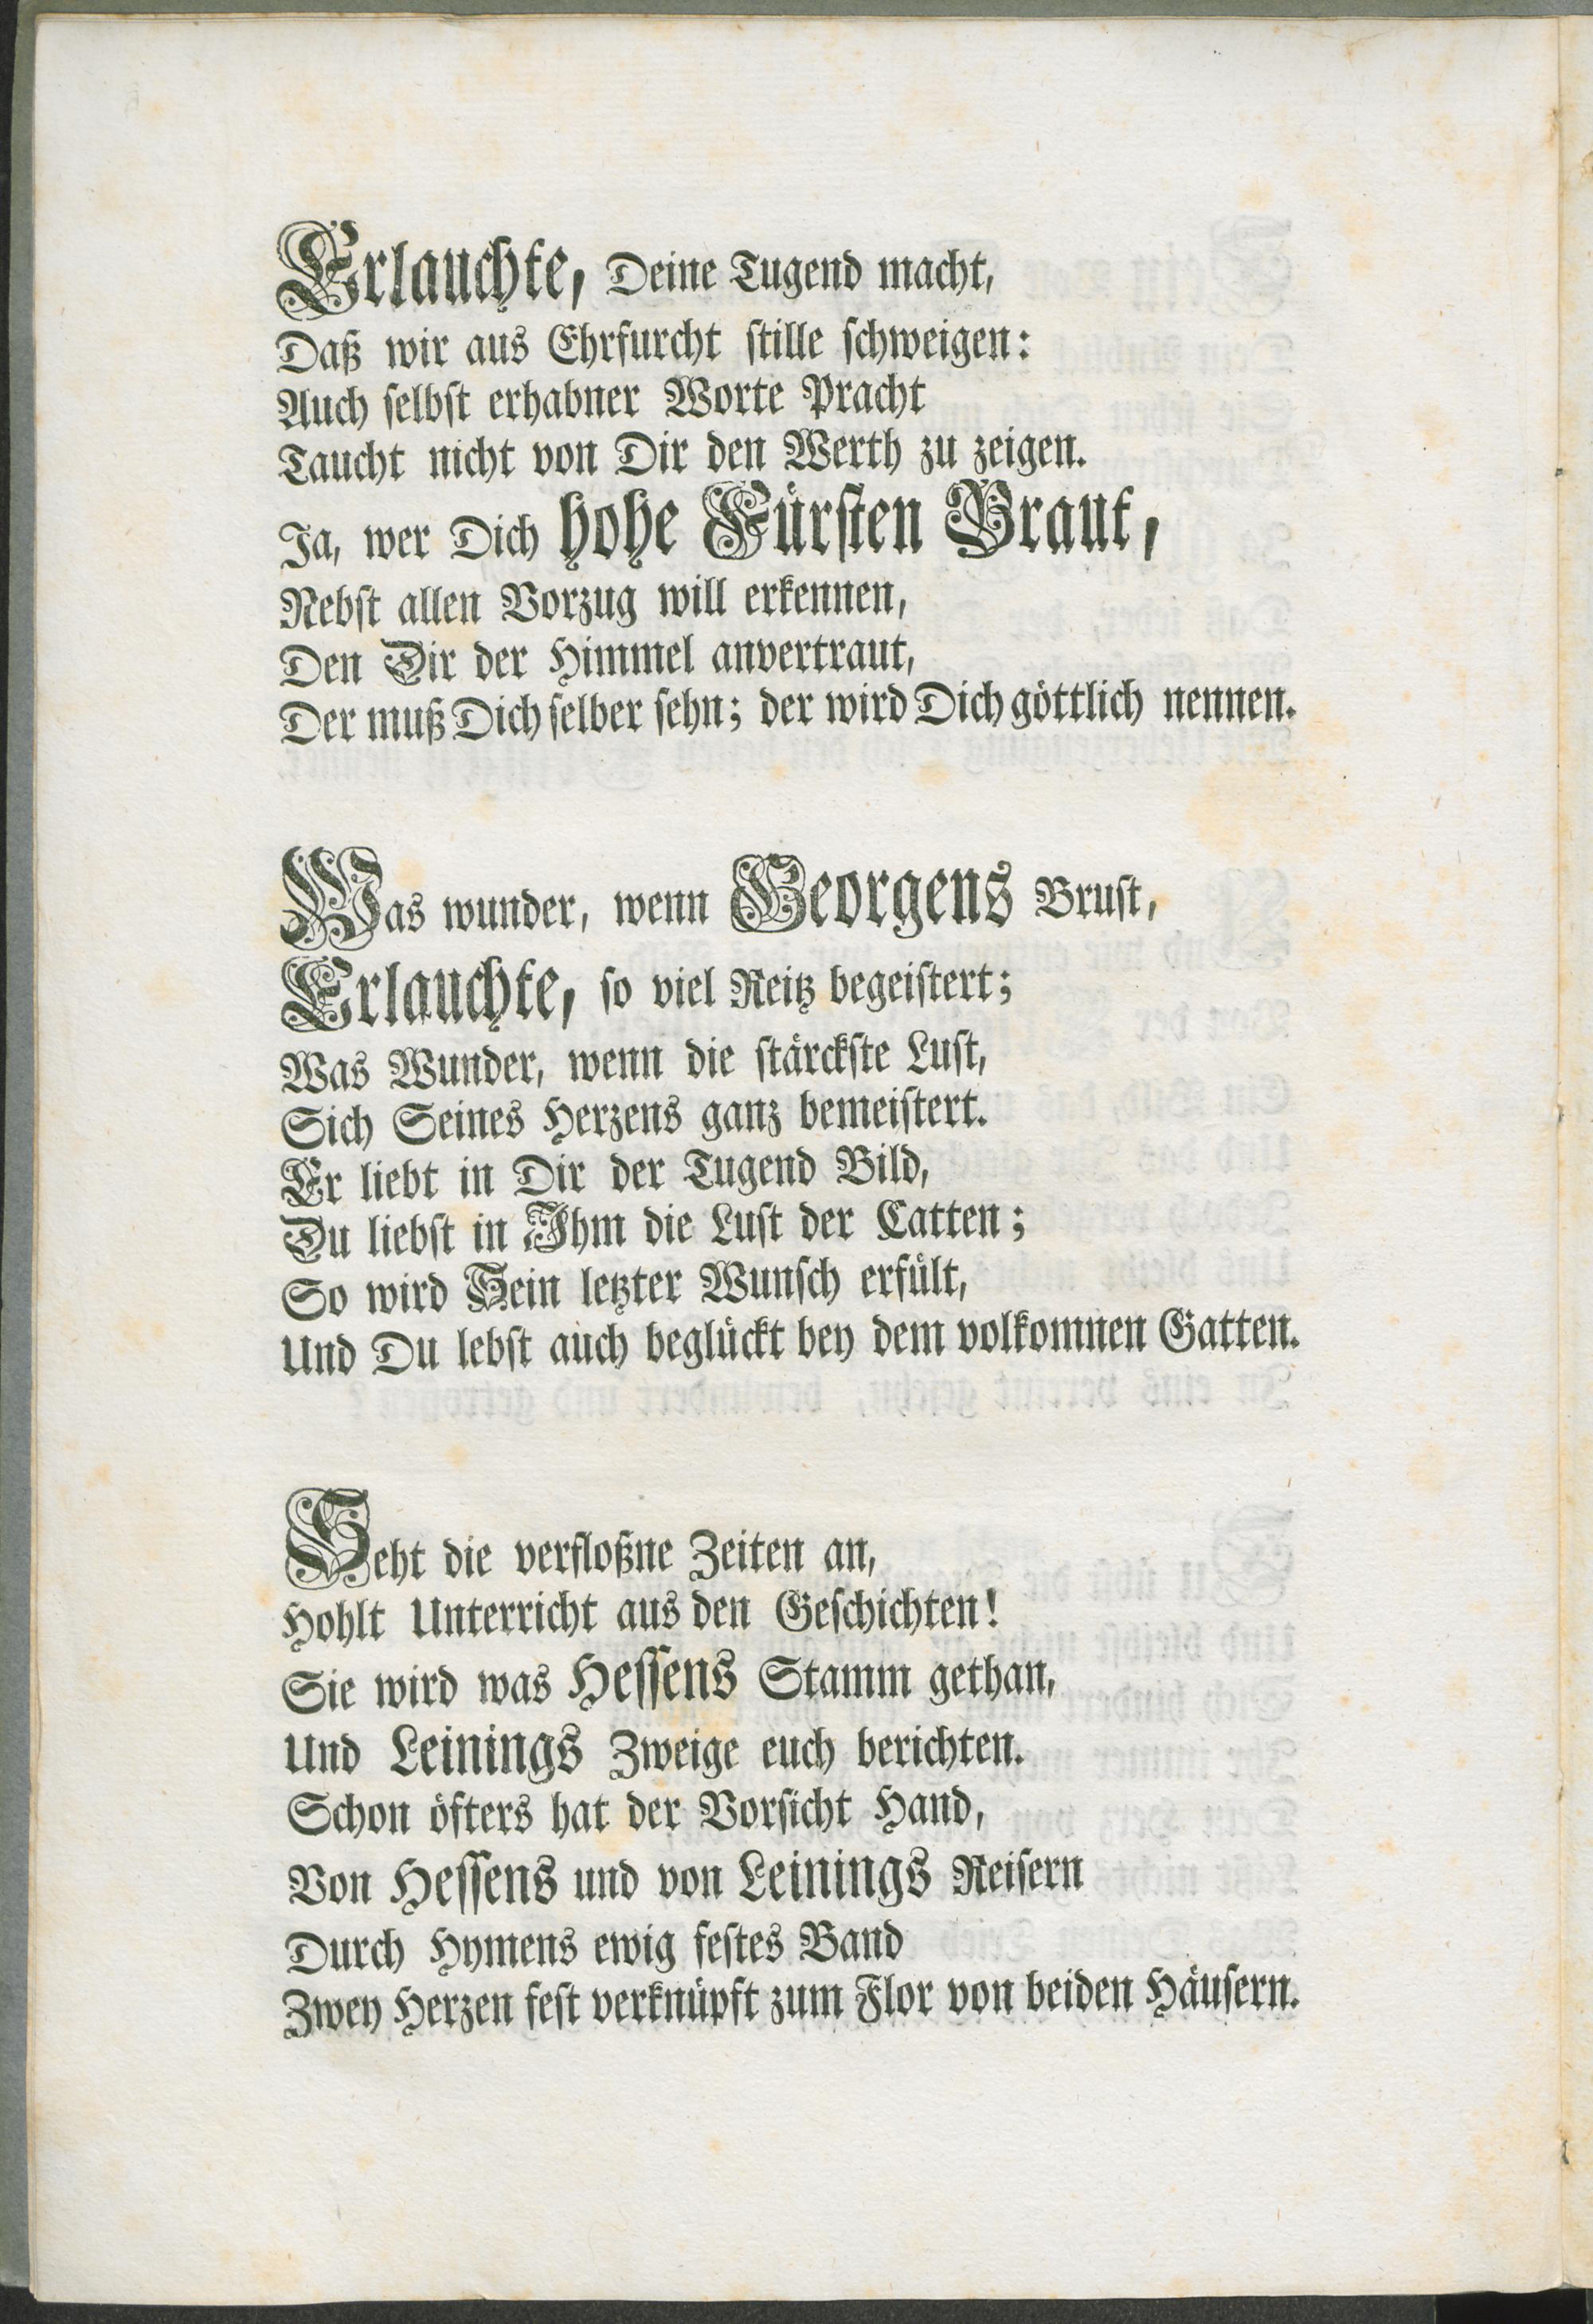 Erlauchte, Deine Tugend macht,
Daß wir aus Ehrfurcht stille schweigen:
Auch selbst erhabner Worte Pracht
Taucht nicht von Dir den Werth zu zeigen.
Ja, wer Dich hohe Fürsten Braut,
Nebst allen Vorzug will erkennen,
Den Dir der Himmel anvertraut,
Der muß Dich selber sehn; der wird Dich göttlich nennen.
Was wunder, wenn Georgens Brust,
Erlauchte, so viel Reitz begeistert;
Was Wunder, wenn die stärckste Lust,
Sich Seines Herzens ganz bemeistert.
Er liebt in Dir der Tugend Bild,
Du liebst in Ihm die Lust der Catten;
So wird Sein letzter Wunsch erfült,
Und Du lebst auch beglückt bey dem volkomnen Gatten.
Seht die verfloßne Zeiten an,
Hohlt Unterricht aus den Geschichten!
Sie wird was Hessens Stamm gethan,
Und Leinings Zweige euch berichten.
Schon öfters hat der Vorsicht Hand,
Von Hessens und von Leinings Reisern
Durch Hymens ewig festes Band
Zwey Herzen fest verknüpft zum Flor von beiden Häusern.